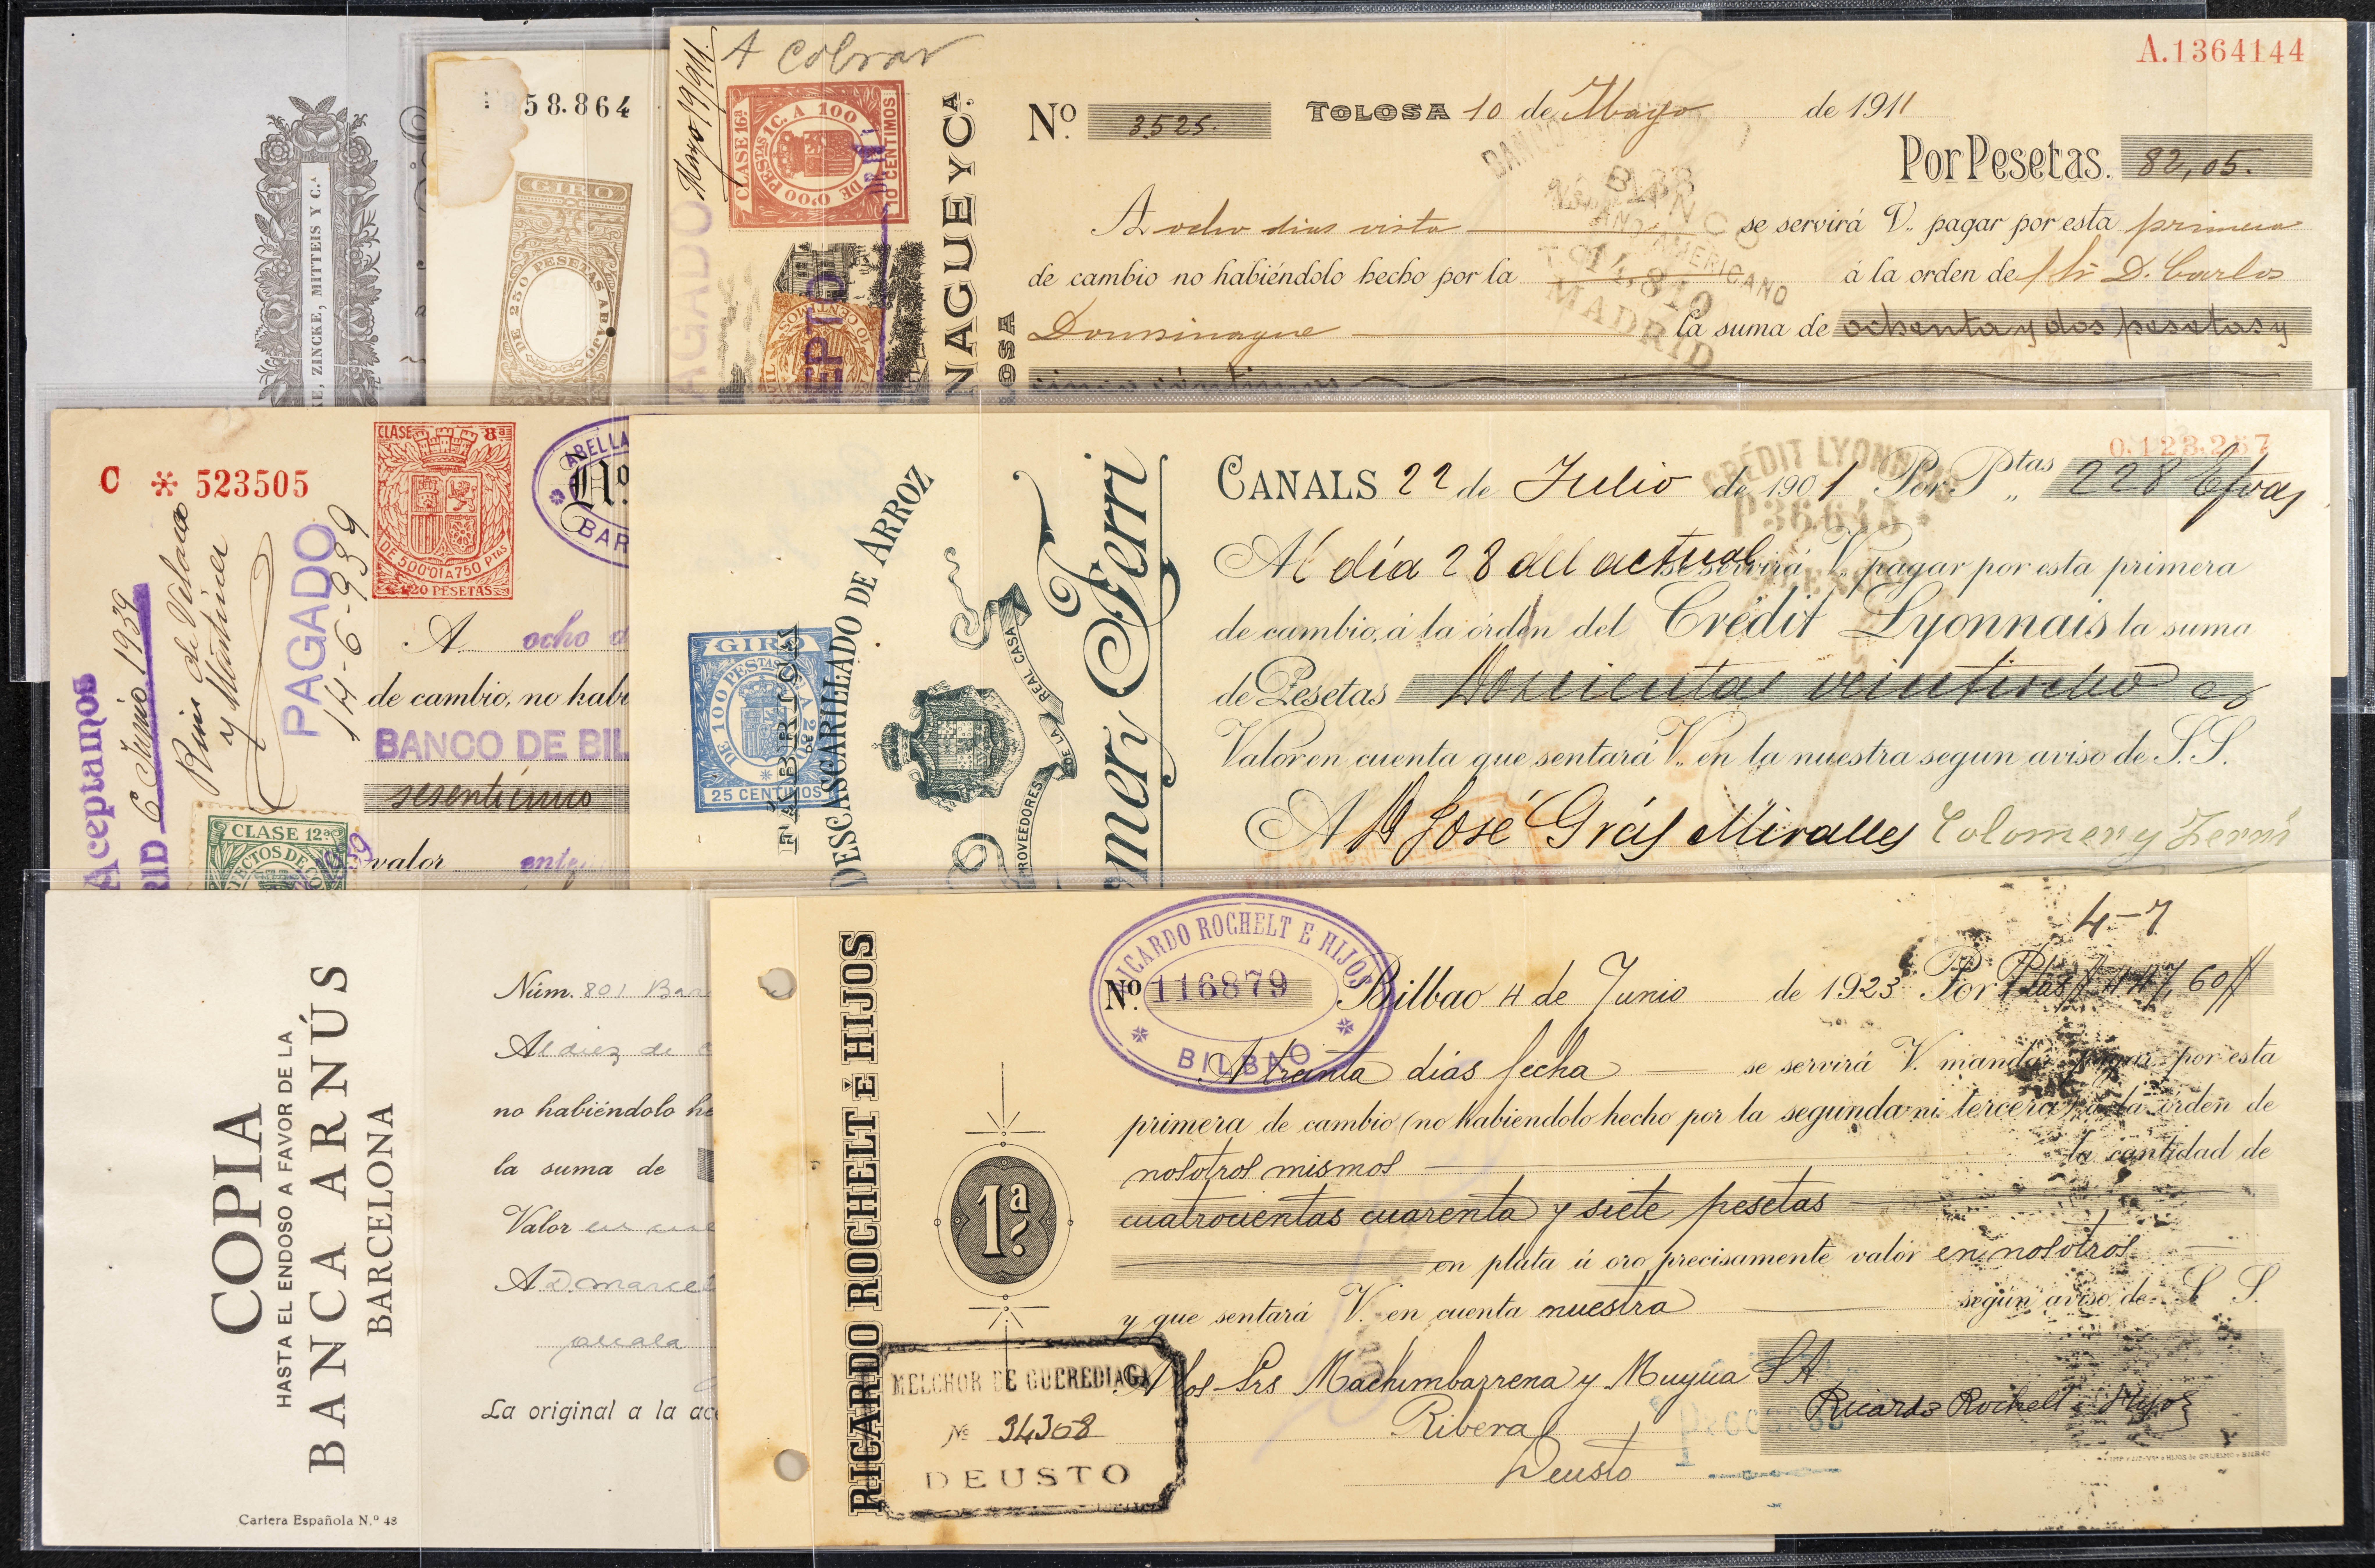 KE, ZINCKE, MITTEIS Y C.ª
58.864
GIRO
DE 250 PESETAS ABAJO
A Cobrar
Mayo 19/911.
CLASE 16ª
DE 0'00 PESETAS 1 C. A 100
10 CENTIMOS
PAGADO
NAGUE Y Cª
LOSA
A.1364144
Nº 3525. TOLOSA 10 de Mayo de 1911
Por Pesetas. 82,05.
A ocho dias vista se servirá V. pagar por esta primera
de cambio no habiéndolo hecho por la á la orden de D. Carlos
Dousinague la suma de ochenta y dos pesetas y
cinco céntimos
BANCO
MADRID
C * 523505
CLASE 8ª
DE 500'01 A 750 PTAS
1'20 PESETAS
ABELLA
Nº
BAR
Aceptamos
RID 6 Junio 1939
Ruiz de Velasco
y Martinez
PAGADO
14-6-939
A ocho d
de cambio, no habi
BANCO DE BIL
sesenticinco
valor
CLASE 12ª
EFECTOS DE CO
GIRO
DE 100 PESTAS A 250
25 CENTIMOS
FÁBRICAS
DE
DESCASCARILLADO DE ARROZ
PROVEEDORES DE LA REAL CASA
omer y Ferri
0.123.257
CANALS 22 de Julio de 1901 Por Ptas „ 228 Efvas
CRÉDIT LYONNAIS
Al día 28 del actual se servirá V. pagar por esta primera
de cambio, á la órden del Crédit Lyonnais la suma
de Pesetas Doscientas veintiocho
Valor en cuenta que sentará V. en la nuestra segun aviso de S.S.
A D José Grás Miralles Colomer y Ferri
COPIA
HASTA EL ENDOSO A FAVOR DE LA
BANCA ARNÚS
BARCELONA
Cartera Española N.º 48
Núm. 801 Bar
Al diez de
no habiéndolo he
la suma de
Valor en cue
A D. Marcel
La original a la ac
RICARDO ROCHELT É HIJOS
RICARDO ROCHELT E HIJOS
BILBAO
4-7
Nº 116879 Bilbao 4 de Junio de 1923 Por Ptas 447,60
A treinta dias fecha se servirá V. mandar pagar por esta
primera de cambio (no habiendolo hecho por la segunda ni tercera) á la órden de
nosotros mismos la cantidad de
cuatrocientas cuarenta y siete pesetas
en plata ú oro precisamente valor en nosotros
y que sentará V. en cuenta nuestra según aviso de S. S.
1ª
MELCHOR DE GUEREDIAGA
Nº 34308
DEUSTO
A los Srs Machimbarrena y Muyua S A
Ribera
Deusto
Ricardo Rochelt é Hijos